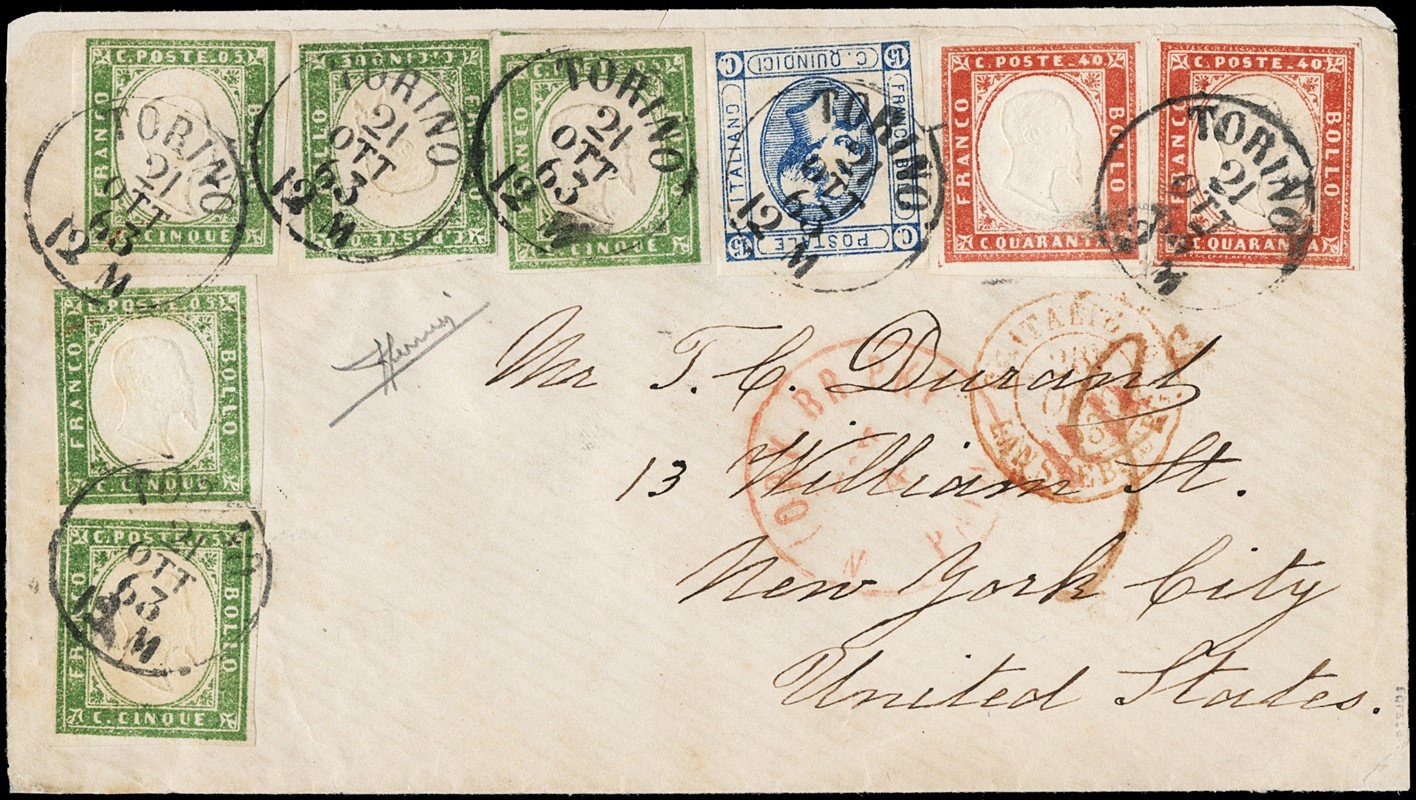 C. POSTE. 05
FRANCO
BOLLO
C. CINQUE
TORINO
21
OTT
63
12 M
C. CINQUE
BOLLO
C. POSTE. 05
TORINO
21
OTT
63
12 M
C. POSTE. 05
FRANCO
BOLLO
C. CINQUE
TORINO
21
OTT
63
12 M
15 C. QUINDICI C.
FRANCO BOLLO
POSTALE
ITALIANO
C. 15
TORINO
21
OTT
63
12 M
C. POSTE. 40
FRANCO
BOLLO
C. QUARANTA
C. POSTE. 40
FRANCO
BOLLO
C. QUARANTA
TORINO
21
OTT
63
12 M
C. POSTE. 05
FRANCO
BOLLO
C. CINQUE
C. POSTE. 05
FRANCO
BOLLO
C. CINQUE
21
OTT
63
12 M
Mr T. C. Durant
13 William St.
New York City
United States.
N. YORK BR. PKT
PAID
ITALIE
LANSLEBOURG